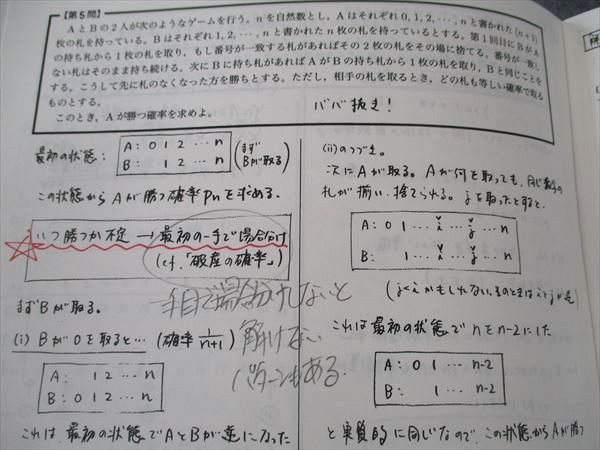 【第5問】
AとBの2人が次のようなゲームを行う。nを自然数とし,Aはそれぞれ0,1,2,…,nと書かれた(n+1)
枚の札を持っている。Bはそれぞれ1,2,…,nと書かれたn枚の札を持っているとする。第1回目にBがA
の持ち札から1枚の札を取り,もし番号が一致する札があればその2枚の札をその場に捨てる。番号が一致し
ない札はそのまま持ち続ける。次にBに持ち札があればAがBの持ち札から1枚の札を取り,Bと同じことを
する。こうして先に札のなくなった方を勝ちとする。ただし,相手の札を取るとき,どの札も等しい確率で取る
ものとする。
このとき,Aが勝つ確率を求めよ。
ババ抜き!
最初の状態:
A: 0 1 2 … n
B: 1 2 … n
(まずBが取る)
この状態からAが勝つ確率Pnを求める。
☆いつ勝つか不定 → 最初の一手で場合分け
(cf.「破産の確率」)
まずBが取る。
一手目で場合分けしないと
解けない
パターンもある。
(i) Bが0を取ると… (確率 1/n+1)
A: 1 2 … n
B: 0 1 2 … n
これは、最初の状態でAとBが逆になった
(ii)のつづき。
次にAが取る。Aが何を取っても、同じ数字の
札が揃い、捨てられる。jを取ったとすると、
A: 0 1 … i … j … n
B: 1 … i … j … n
(j<iかもしれない。そのときはiとjが逆)
これは最初の状態でnをn-2にした
A: 0 1 … n-2
B: 1 … n-2
と実質的に同じなので、この状態からAが勝つ